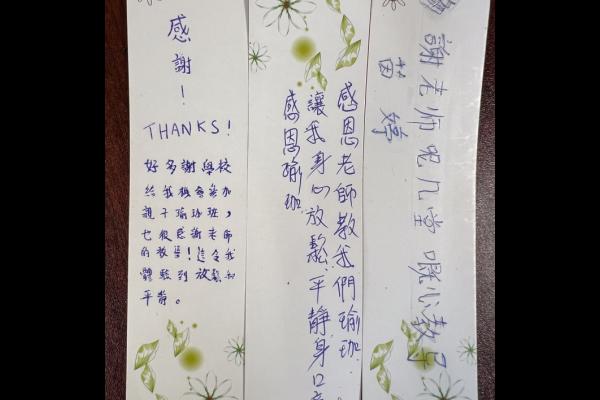 感
謝
!
THANKS!
好多謝學校
給我機會參加
親子瑜珈班，
也很感謝老師
的教導!這令我
體驗到放鬆和
平靜。
感恩老師教我們瑜珈
讓我身心放鬆平靜身口
感恩瑜珈
謝老师呢几堂嘅心教导
苗婷